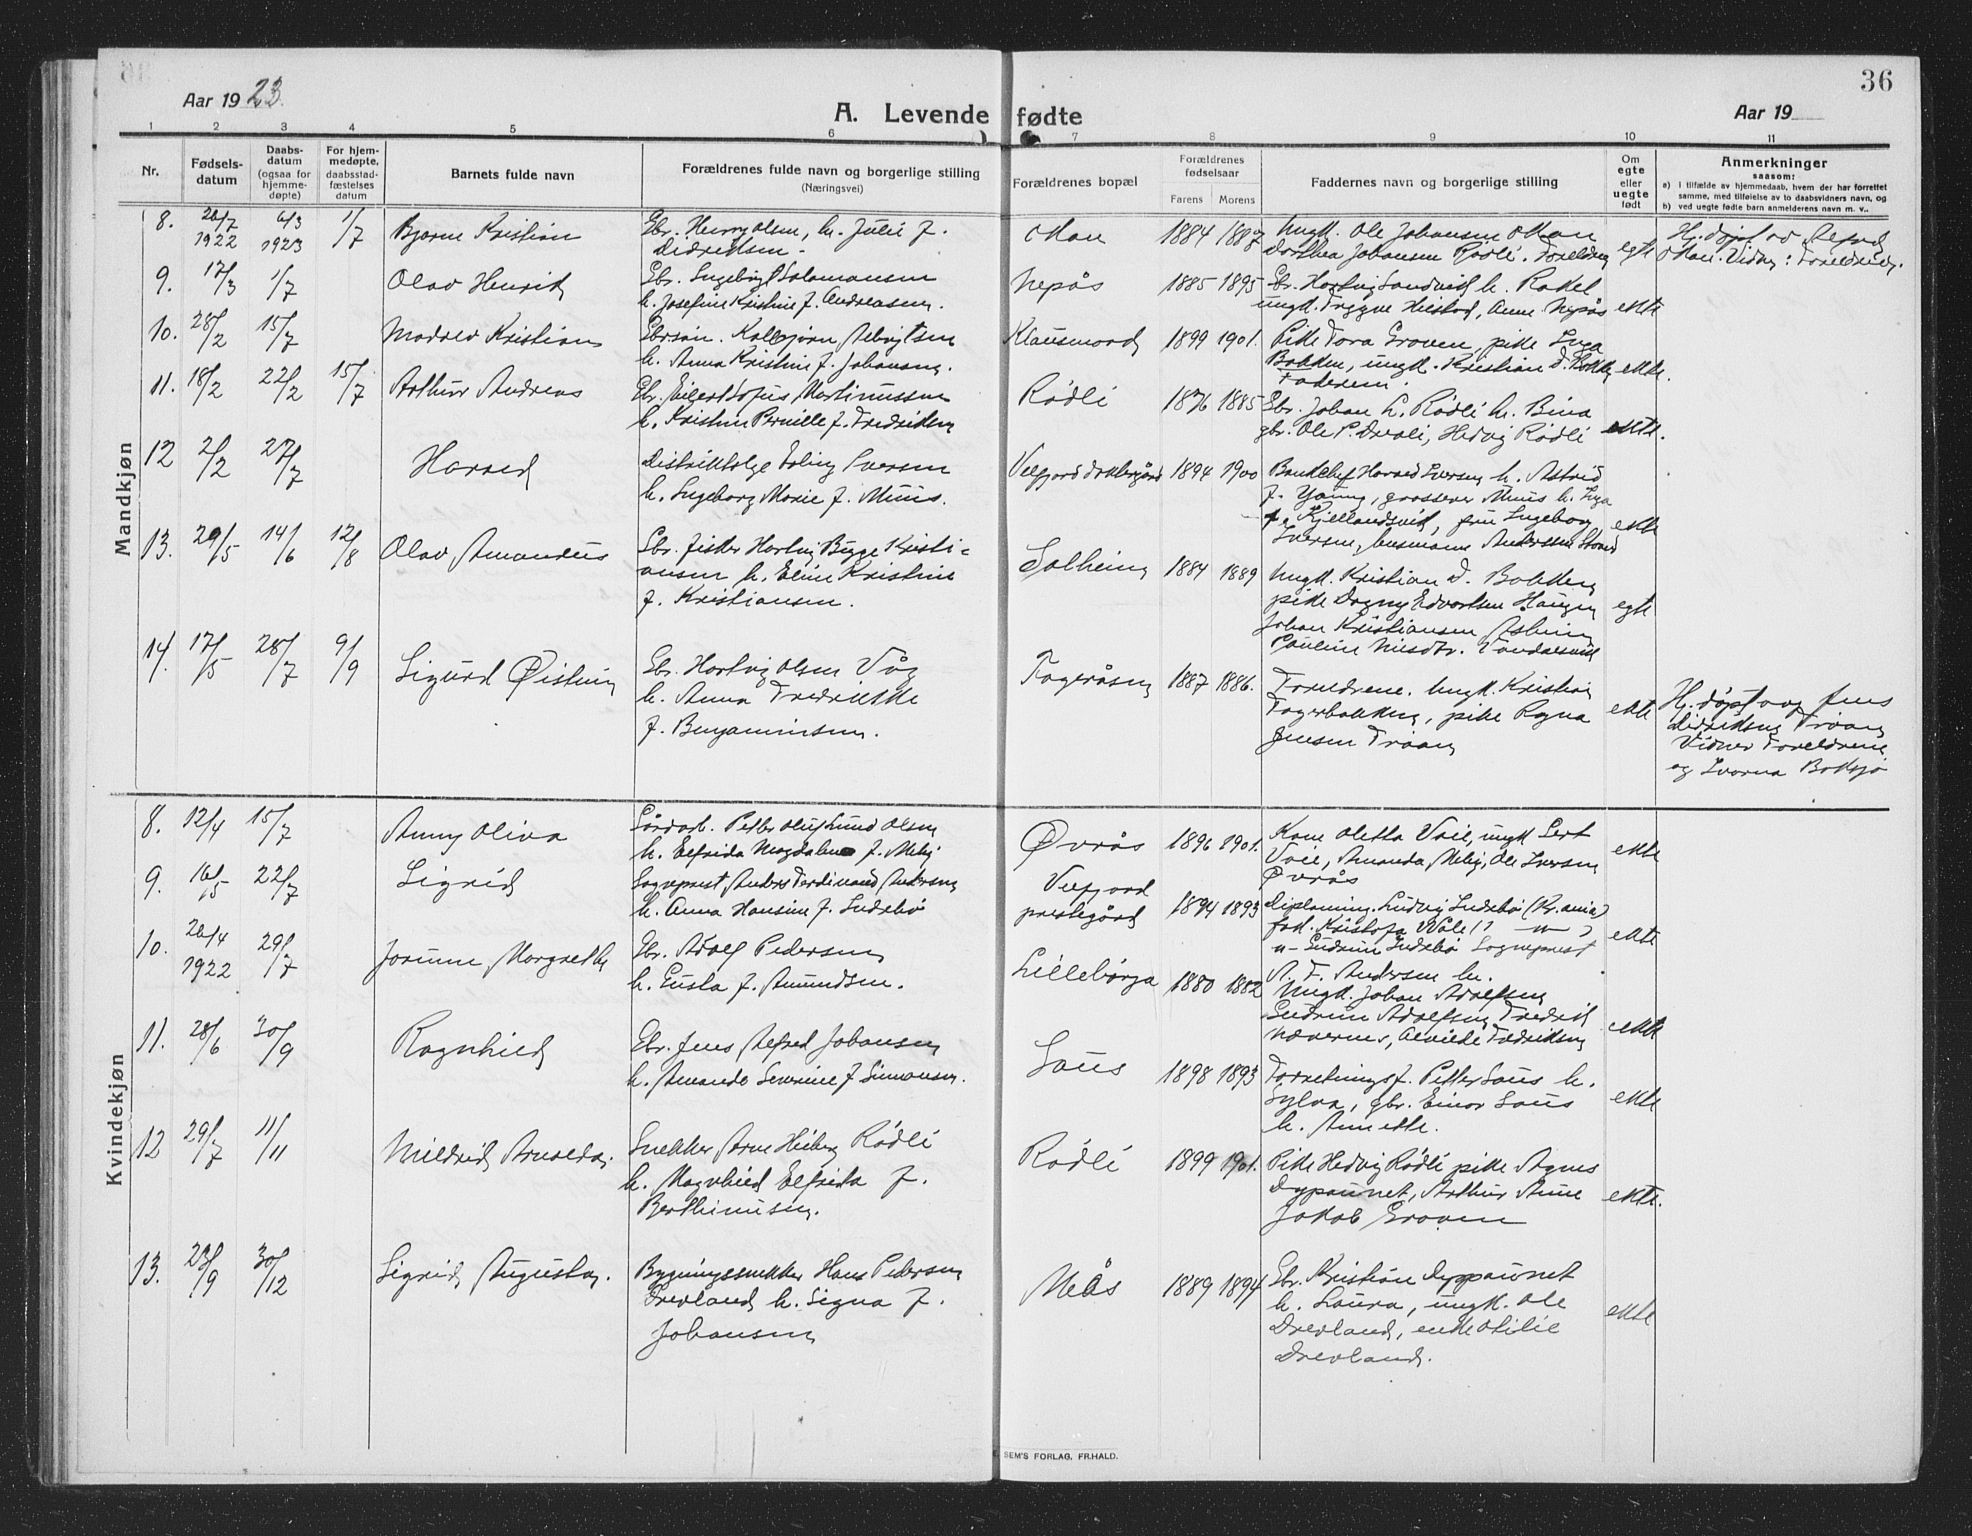 36
Aar 1923.
A. Levende fødte
Aar 19
1 2 3 4 5 6 7 8 9 10 11
Nr.
Fødsels-
datum
Daabs-
datum
(ogsaa for
hjemme-
døpte)
For hjem-
medøpte,
daabsstad-
fæstelses
datum
Barnets fulde navn
Forældrenes fulde navn og borgerlige stilling
(Næringsvei)
Forældrenes bopæl
Forældrenes
fødselsaar
Farens Morens
Faddernes navn og borgerlige stilling
Om
egte
eller
uegte
født
Anmerkninger
saasom:
a) I tilfælde av hjemmedaab, hvem der har forrettet
samme, med tilføielse av to daabsvidners navn, og
b) ved uegte fødte barn anmelderens navn m. v..
Mandkjøn
8. 26/7 1922 6/3 1923 1/7 Bjarne Kristian
Gbr. Henry Olsen, h. Julie f.
Didriksen.
1884 1887
Ungk. Ole Johansen
Dorthea Johansen Rødli. Foreldrene
egte
Hj. døpt av Alfred
Vidner: Foreldrene.
9. 17/3 1/7 Olav Henrik
Gbr. Ingebrigt Salamonsen
h. Josefine Kristine f. Andreasen.
Nepås 1885 1895
Gbr. Hartvig Sandvik h. Rakel
ungk. Trygve Anne Nepås
ekte
10. 28/2 15/7 Kristian
h. Anna Kristine f. Johansen.
Klausmark 1899 1901.
Pike Tora Groven, pike Inga
Bakken, ungk. Kristian D. Bakken
Faderen.
ekte.
11. 18/2 22/2 15/7 Arthur Andreas
Gbr. Eilert Sofus Martinussen
h. Kristine Pernille f. Fredriksen
Rødli 1876 1885
Gbr. Johan L. Rødli h. Bina
gbr. Ole P. Hedvig Rødli
ekte.
12 2/2 27/7 Harald
Distriktslege Erling Iversen
h. Ingeborg Marie f. Muus.
Velfjord doktergård 1894 1900
Harald Iversen h. Astrid
f. Young, grosserer Muus h. Inga
f. Kjellandsvik, fru Ingeborg
Iversen, Andersen
ekte
13. 29/5 14/6 12/8 Olav Amandus
Gbr. fisker Hartvig Bugge Kristi-
ansen h. Eline Kristine
f. Kristiansen.
Solheim 1884 1889
Ungk. Kristian D. Bakken
pike Dagny Edvartsen Haugen
Johan Kristiansen
Pauline
egte
14. 17/5 28/7 9/9 Sigurd Øistein
Gbr. Hartvig Olsen Våg
h. Anna Fredrikke
f. Benjaminsen.
Fageråsen 1887 1886.
Foreldrene. Ungk. Kristian
Fagerbakken, pike Ragna
Jensen Troan
ekte
Hj. døpt av Jens
Didriksen Troan
Vidner Foreldrene
og
Kvindekjøn
8. 12/4 15/7 Anny Oliva
Petter Oluf Lund Olsen
h. Elfrida Magdalene f.
Øvrås 1896 1901.
Kone Oletta ungk
Amanda Ole Iversen
Øvrås
ekte
9. 16/5 22/7 Sigrid
Sogneprest Anders Ferdinand Andersen
h. Anna Hansine f. Indrebø
Velfjord
prestegård 1894 1893
Ludvig Indrebø
Gudrun Indrebø Sogneprest
A. F. Andersen h.
ekte
10. 26/4 1922 29/7 Jorunn Margrethe
Gbr. Adolf Pedersen
h. Gusta f. Amundsen.
Lillebørja 1880 1882
Ungk. Johan Adolfsen
Gudrun Adolfsen Fredrik
Fredriksen
ekte
11. 28/6 30/9 Ragnhild
Gbr. Jens Alfred Johansen
h. Amanda Severine f Simonsen.
Saus 1898 1893
Forretningsf. Petter Saus h.
Sylva, gbr. Einar Saus
h. Annette.
ekte
12 29/7 11/11 Mildrid Arnolda.
Snekker Arne Heiberg Rødli
h. Magnhild Elfrida f.
Berthinusen.
Rødli 1899 1901.
Pike Hedvig Rødli pike Agnes
Dypaunet, Arthur
Jakob Groven
ekte.
13. 23/9 30/12 Sigrid Augusta.
Bygningssnekker Hans Pedersen
Drevland h. Signa f.
Johansen
Meås 1889 1894
Gbr. Kristian Dyppaunet
h. Laura, ungk. Ole
Drevland, enke Otilie
Drevland.
ekte
SEM'S FORLAG, FR.HALD.